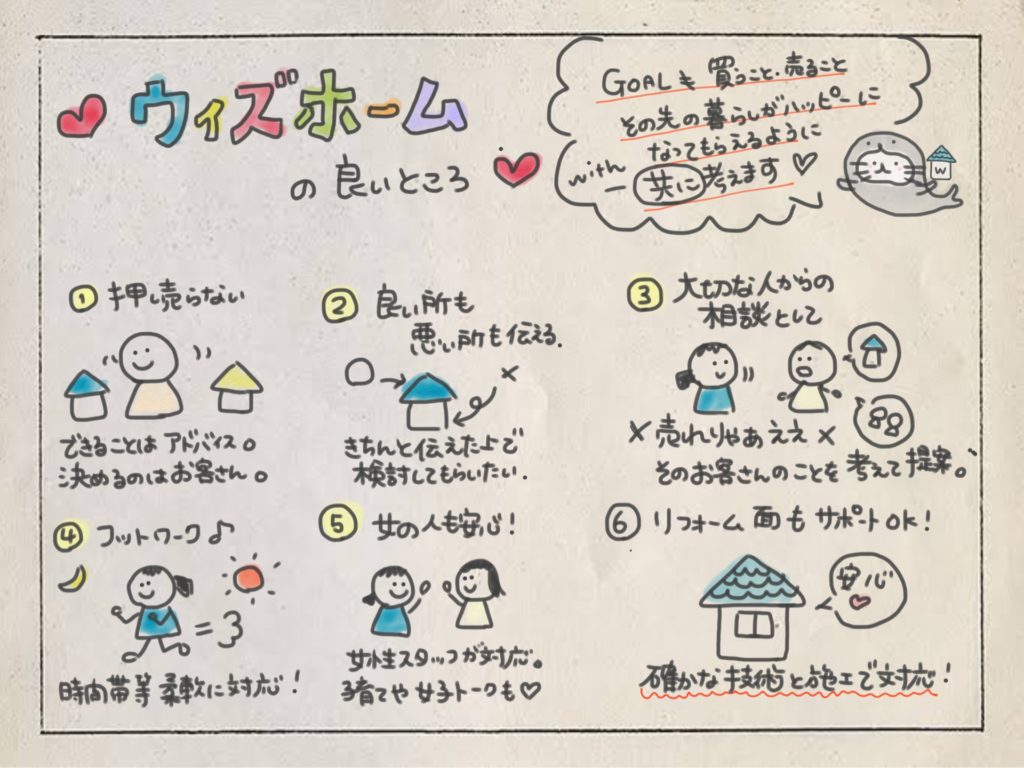 ウィズホーム
の良いところ
GOALも買うこと・売ること
その先の暮らしがハッピーに
なってもらえるように
with
共に考えます♡
W
① 押し売らない
できることはアドバイス。
決めるのはお客さん。
② 良い所も
悪い所も伝える.
○
×
きちんと伝えた上で
検討してもらいたい.
③ 大切な人からの
相談として
×売れりゃあええ×
そのお客さんのことを考えて提案。
④ フットワーク♪
時間帯等柔軟に対応!
⑤ 女の人も安心!
女性スタッフが対応。
子育てや女子トークも♡
⑥ リフォーム面もサポートOK!
安心
確かな技術と施工で対応!